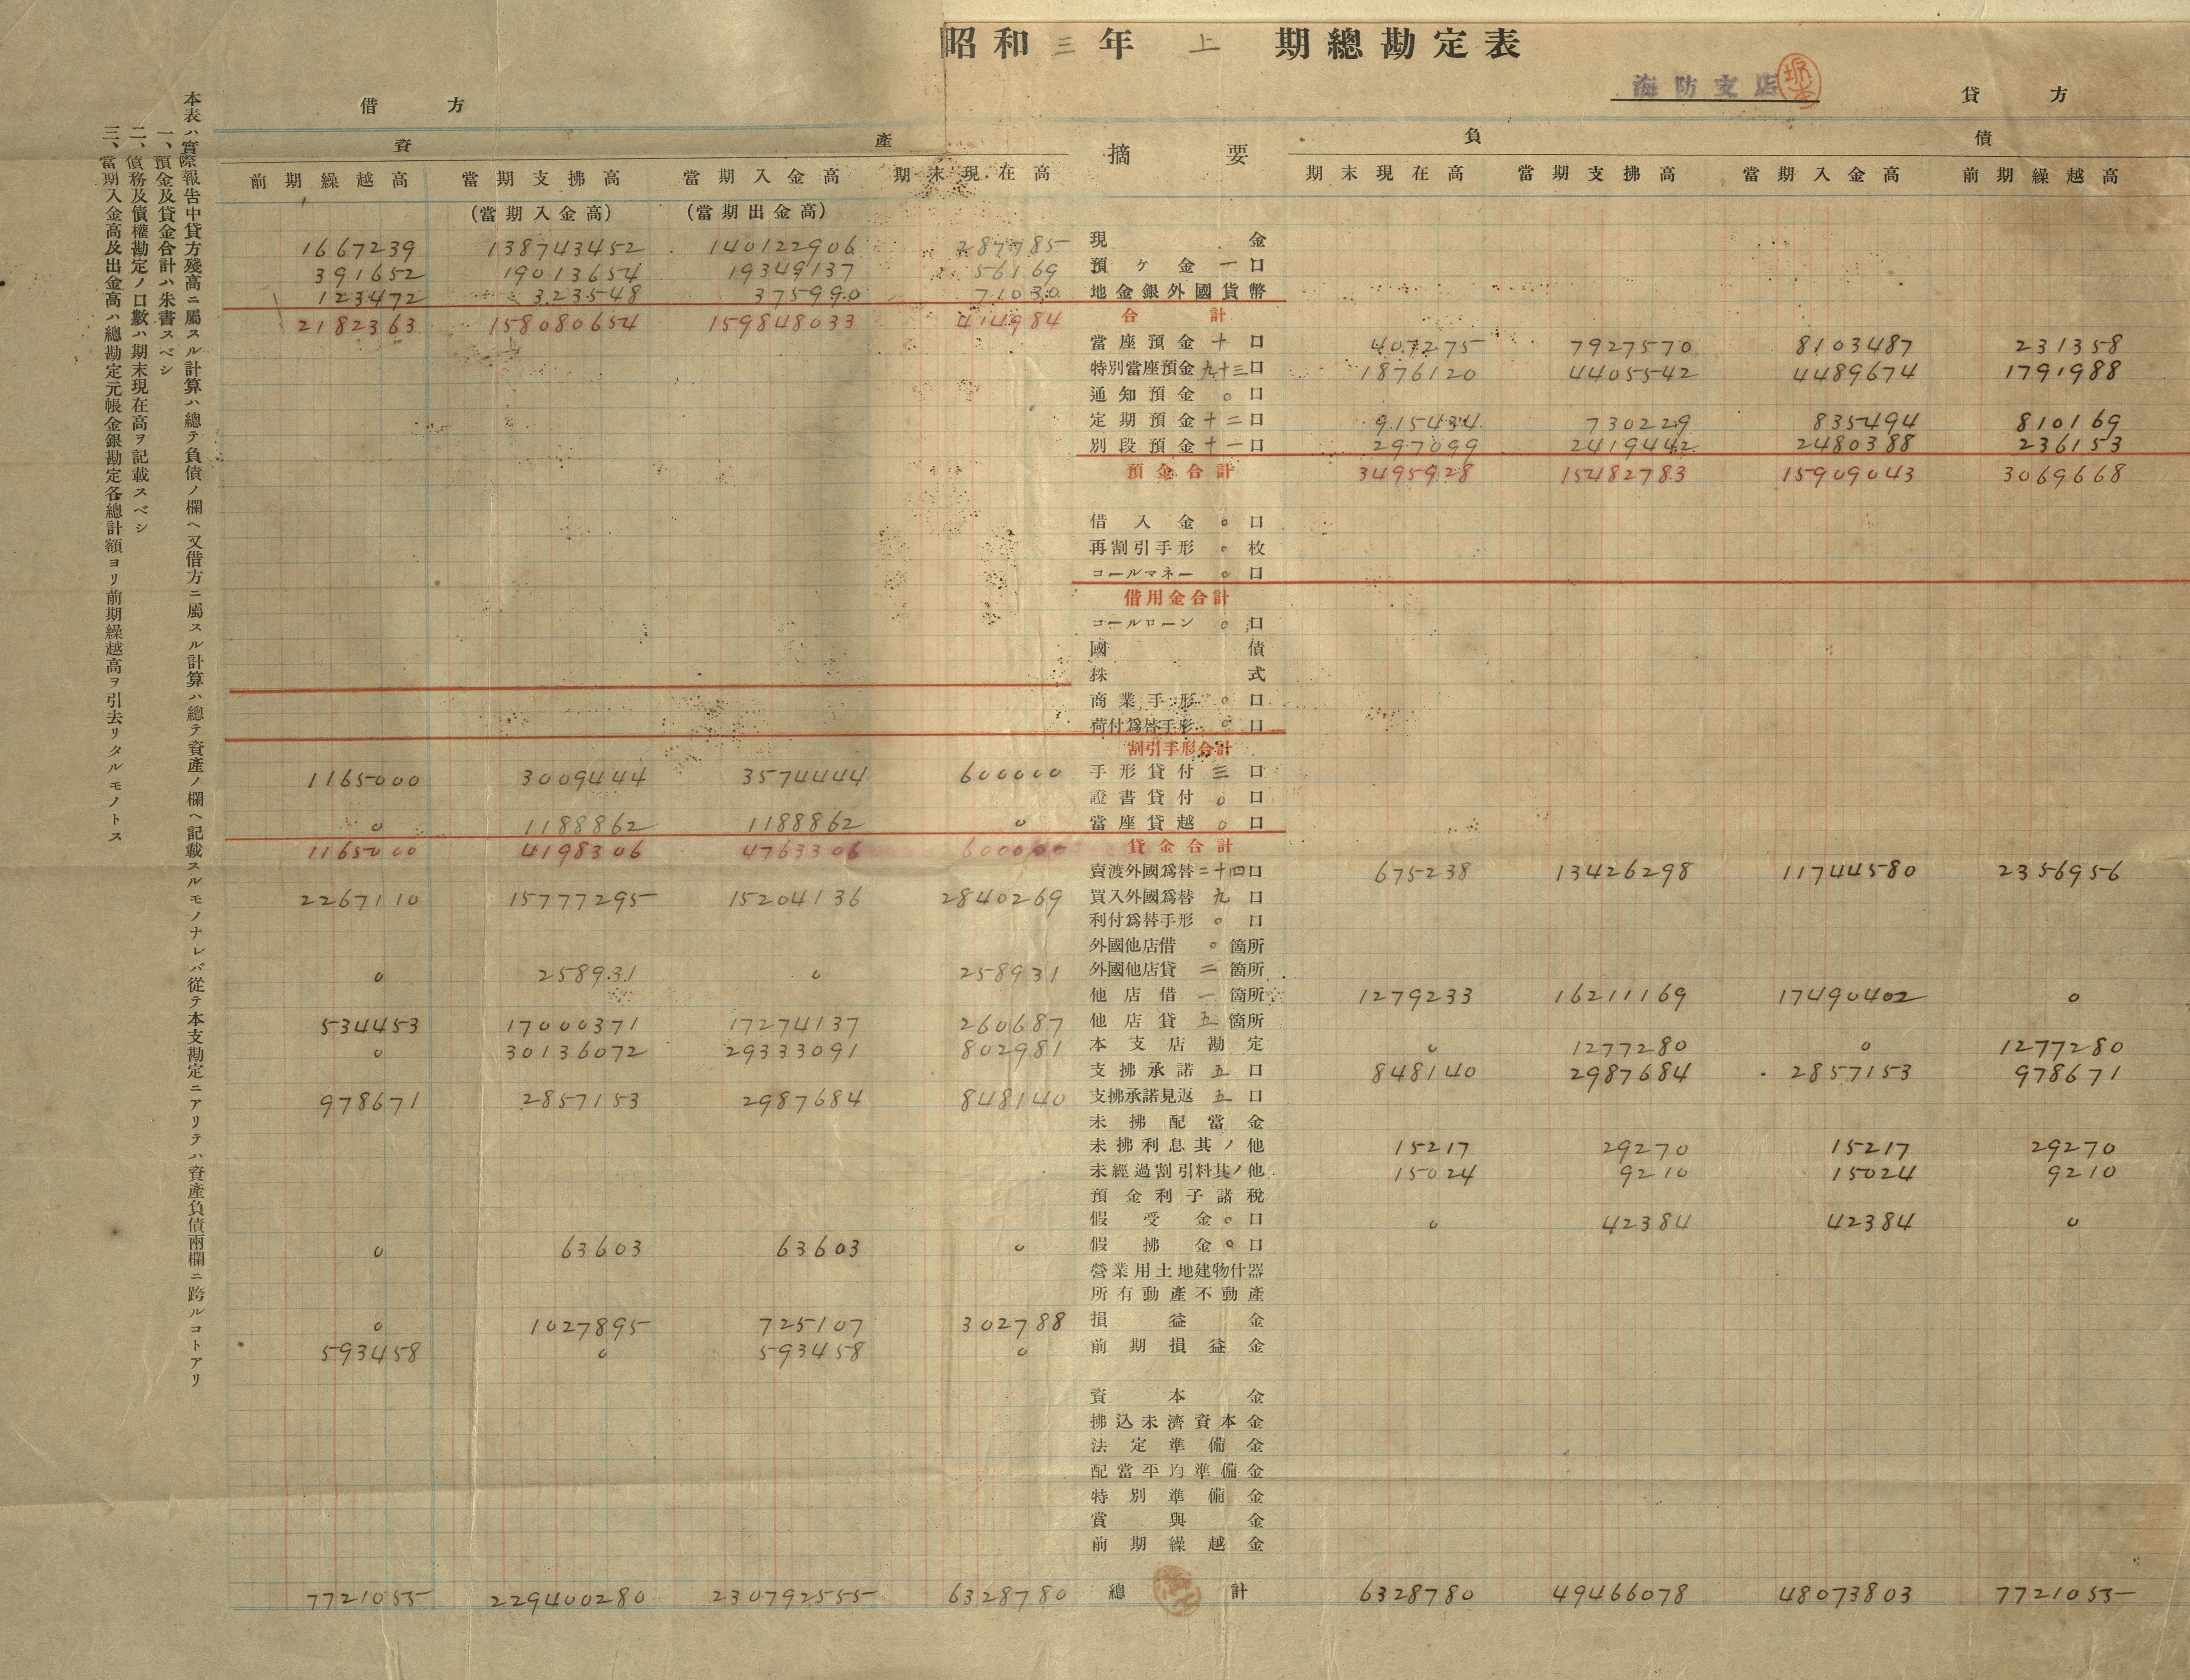 昭和三年上期總勘定表
海防支店
借方 貸方
資產 摘要 負債
前期繰越高 當期支拂高 當期入金高 期末現在高 期末現在高 當期支拂高 當期入金高 前期繰越高
(當期入金高) (當期出金高)
1667239 138743452 140122906 287785 現金
391652 19013654 19349137 56169 預ケ金一口
123472 323548 375990 71030 地金銀外國貨幣
2182363 158080654 159848033 414984 合計
當座預金十口 407275 7927570 8103487 231358
特別當座預金九十三口 1876120 4405542 4489674 1791988
通知預金〇口
定期預金十二口 915434 730229 835494 810169
別段預金十一口 297099 2419442 2480388 236153
預金合計 3495928 15482783 15909043 3069668
借入金〇口
再割引手形〇枚
コールマネー〇口
借用金合計
コールローン〇口
國債
株式
商業手形〇口
荷付爲替手形〇口
割引手形合計
1165000 3009444 3574444 600000 手形貸付三口
證書貸付〇口
0 1188862 1188862 0 當座貸越〇口
1165000 4198306 4763306 600000 貸金合計
賣渡外國爲替二十四口 675238 13426298 11744580 2356956
2267110 15777295 15204136 2840269 買入外國爲替九口
利付爲替手形〇口
外國他店借〇箇所
0 258931 0 258931 外國他店貸二箇所
他店借一箇所 1279233 16211169 17490402 0
534453 17000371 17274137 260687 他店貸五箇所
0 30136072 29333091 802981 本支店勘定 0 1277280 0 1277280
支拂承諾五口 848140 2987684 2857153 978671
978671 2857153 2987684 848140 支拂承諾見返五口
未拂配當金
未拂利息其ノ他 15217 29270 15217 29270
未經過割引料其ノ他 15024 9210 15024 9210
預金利子諸稅
假受金〇口 0 42384 42384 0
0 63603 63603 0 假拂金〇口
營業用土地建物什器
所有動產不動產
0 1027895 725107 302788 損益金
593458 0 593458 0 前期損益金
資本金
拂込未濟資本金
法定準備金
配當平均準備金
特別準備金
賞與金
前期繰越金
7721055 229400280 230792555 6328780 總計 6328780 49466078 48073803 7721055
本表ハ實際報告中貸方殘高ニ屬スル計算ハ總テ負債ノ欄ヘ又借方ニ屬スル計算ハ總テ資產ノ欄ヘ記載スルモノナレバ從テ本支勘定ニアリテハ資產負債兩欄ニ跨ルコトアリ
一、預金及貸金合計ハ朱書スベシ
二、債務及債權勘定ノ口數ハ期末現在高ヲ記載スベシ
三、當期入金高及出金高ハ總勘定元帳金銀勘定各總計額ヨリ前期繰越高ヲ引去リタルモノトス